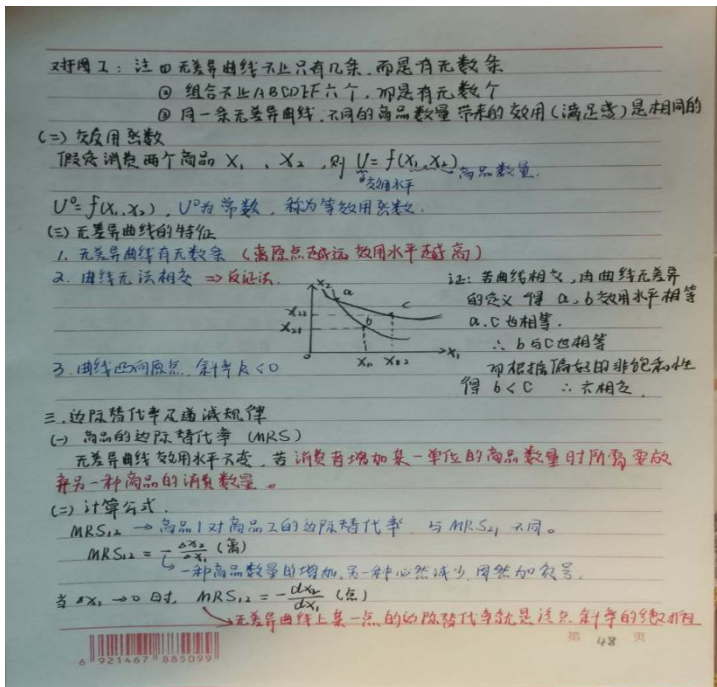 对于图工：注① 无差异曲线不止只有几条，而是有无数条
② 组合不止ABCDEF六个，而是有无数个
③ 同一条无差异曲线，不同的商品数量带来的效用（满足感）是相同的
(二) 效用函数
假定消费两个商品 X₁、X₂，则 U=f(X₁,X₂) 商品数量.
效用水平
U⁰=f(X₁,X₂)，U⁰为常数，称为等效用函数.
(三) 无差异曲线的特征
1. 无差异曲线有无数条（离原点越远效用水平越高）
2. 曲线无法相交 ⇒反证法.
证: 若曲线相交，由曲线无差异
的定义 得 a,b效用水平相等
a.c也相等.
∴ b与c也相等
而根据偏好的非饱和性
得 b<c ∴不相交.
X₂
a
c
b
X₂₂
X₂₁
0
X₁₁
X₁
3. 曲线凹向原点，斜率k<0
三.边际替代率及递减规律
(一) 商品的边际替代率 (MRS)
无差异曲线效用水平不变，若消费者增加某一单位的商品数量时所需要放
弃另一种商品的消费数量。
(二) 计算公式.
MRS₁₂ → 商品1对商品2的边际替代率，与MRS₂₁不同。
MRS₁₂ = -Δx₂/Δx₁ (离)
一种商品数量的增加，另一种必然减少，固然加负号.
当 Δx₁→0 时，MRS₁₂ = -dx₂/dx₁ (点)
无差异曲线上某一点的边际替代率就是该点斜率的绝对值
第 48 页
6 921467 885099